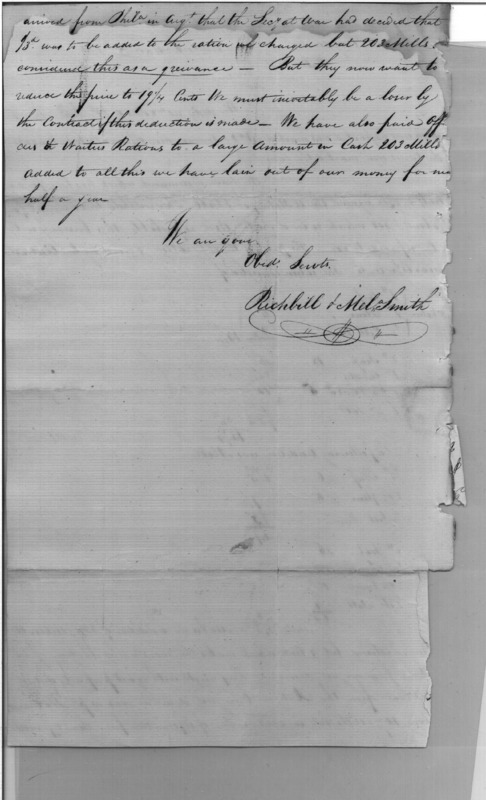 arrived from Phila in Augt that the Secy at War had decided that
was to be added to the ration we charged but 203 Mills &
considered this as a greivance — But they now want to
reduce the price to 19¾ Cents We must inevitably be a loser by
the Contract if this deduction is made — We have also paid Off
cers & Waiters Rations to a large Amount in Cash 203 Mills
Added to all this we have lain out of our money for
half a year
We are your
Obedt Servts
Richbill & Mel Smith